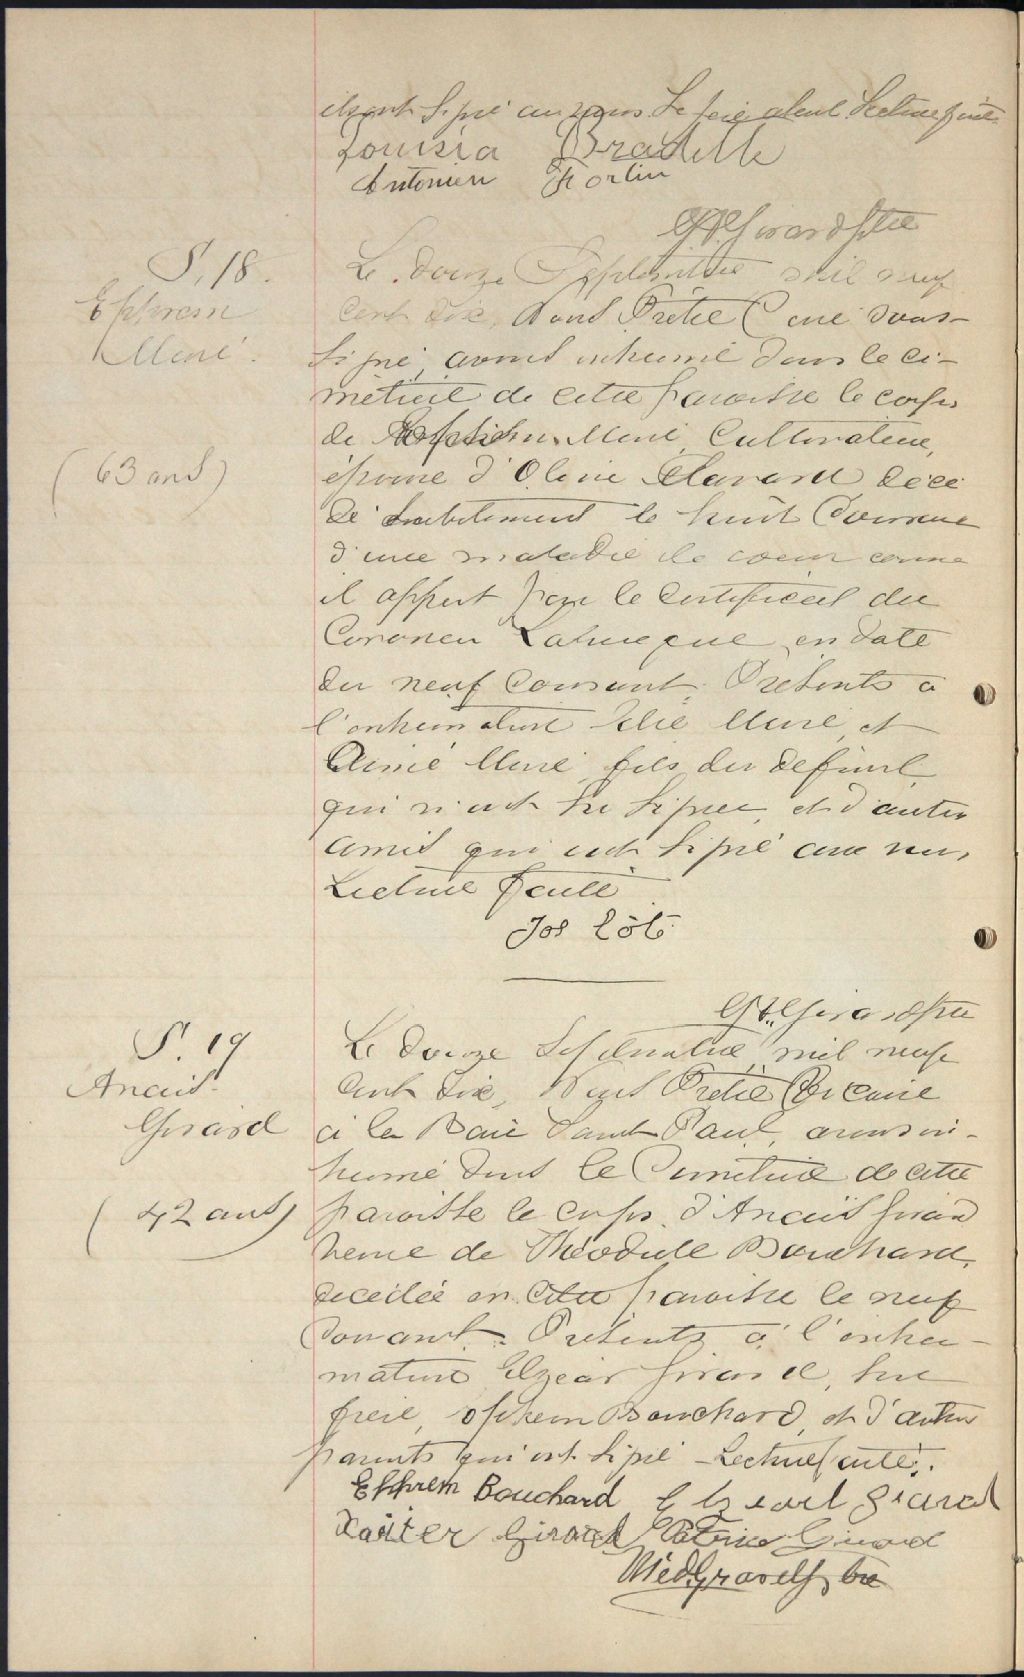 ils ont signé avec nous. Le père absent. Lecture faite
Louisia Bradette
Antonien Fortin
Girard ptre
S. 18.
Ephrem
Mené.
(63 ans)
Le douze Septembre mil neuf
cent dix, Nous Prêtre Curé sous-
signé, avons inhumé dans le ci-
metière de cette paroisse le corps
de Ephrem Mené, Cultivateur,
époux d'Olivie Savard décé
dé subitement le huit Courant
d'une maladie de coeur comme
il appert par le certificat du
Coroner en date
du neuf Courant. Présents à
l'inhumation Elie Mené, et
Aimé Mené, fils du defunt
qui n'ont su signer, et d'autres
amis qui ont signé avec nous,
Lecture faite
Jos Côté
Girard ptre
S. 19
Anais
Girard
(42 ans)
Le douze Septembre, mil neuf
cent dix, Nous Prêtre Vicaire
à la Baie Saint Paul, avons in-
humé dans le Cimetière de cette
paroisse le corps d'Anaïs Girard
veuve de Théodule Bouchard,
decédée en cette paroisse le neuf
Courant. Présents à l'inhu-
mation Elzéar Girard, son
frère, Ephrem Bouchard, et d'autres
parents qui ont signé - Lecture faite.
Ephrem Bouchard Elzearl Girard
Xavier Girard Patrice Girard
Méd. Gravel, ptre